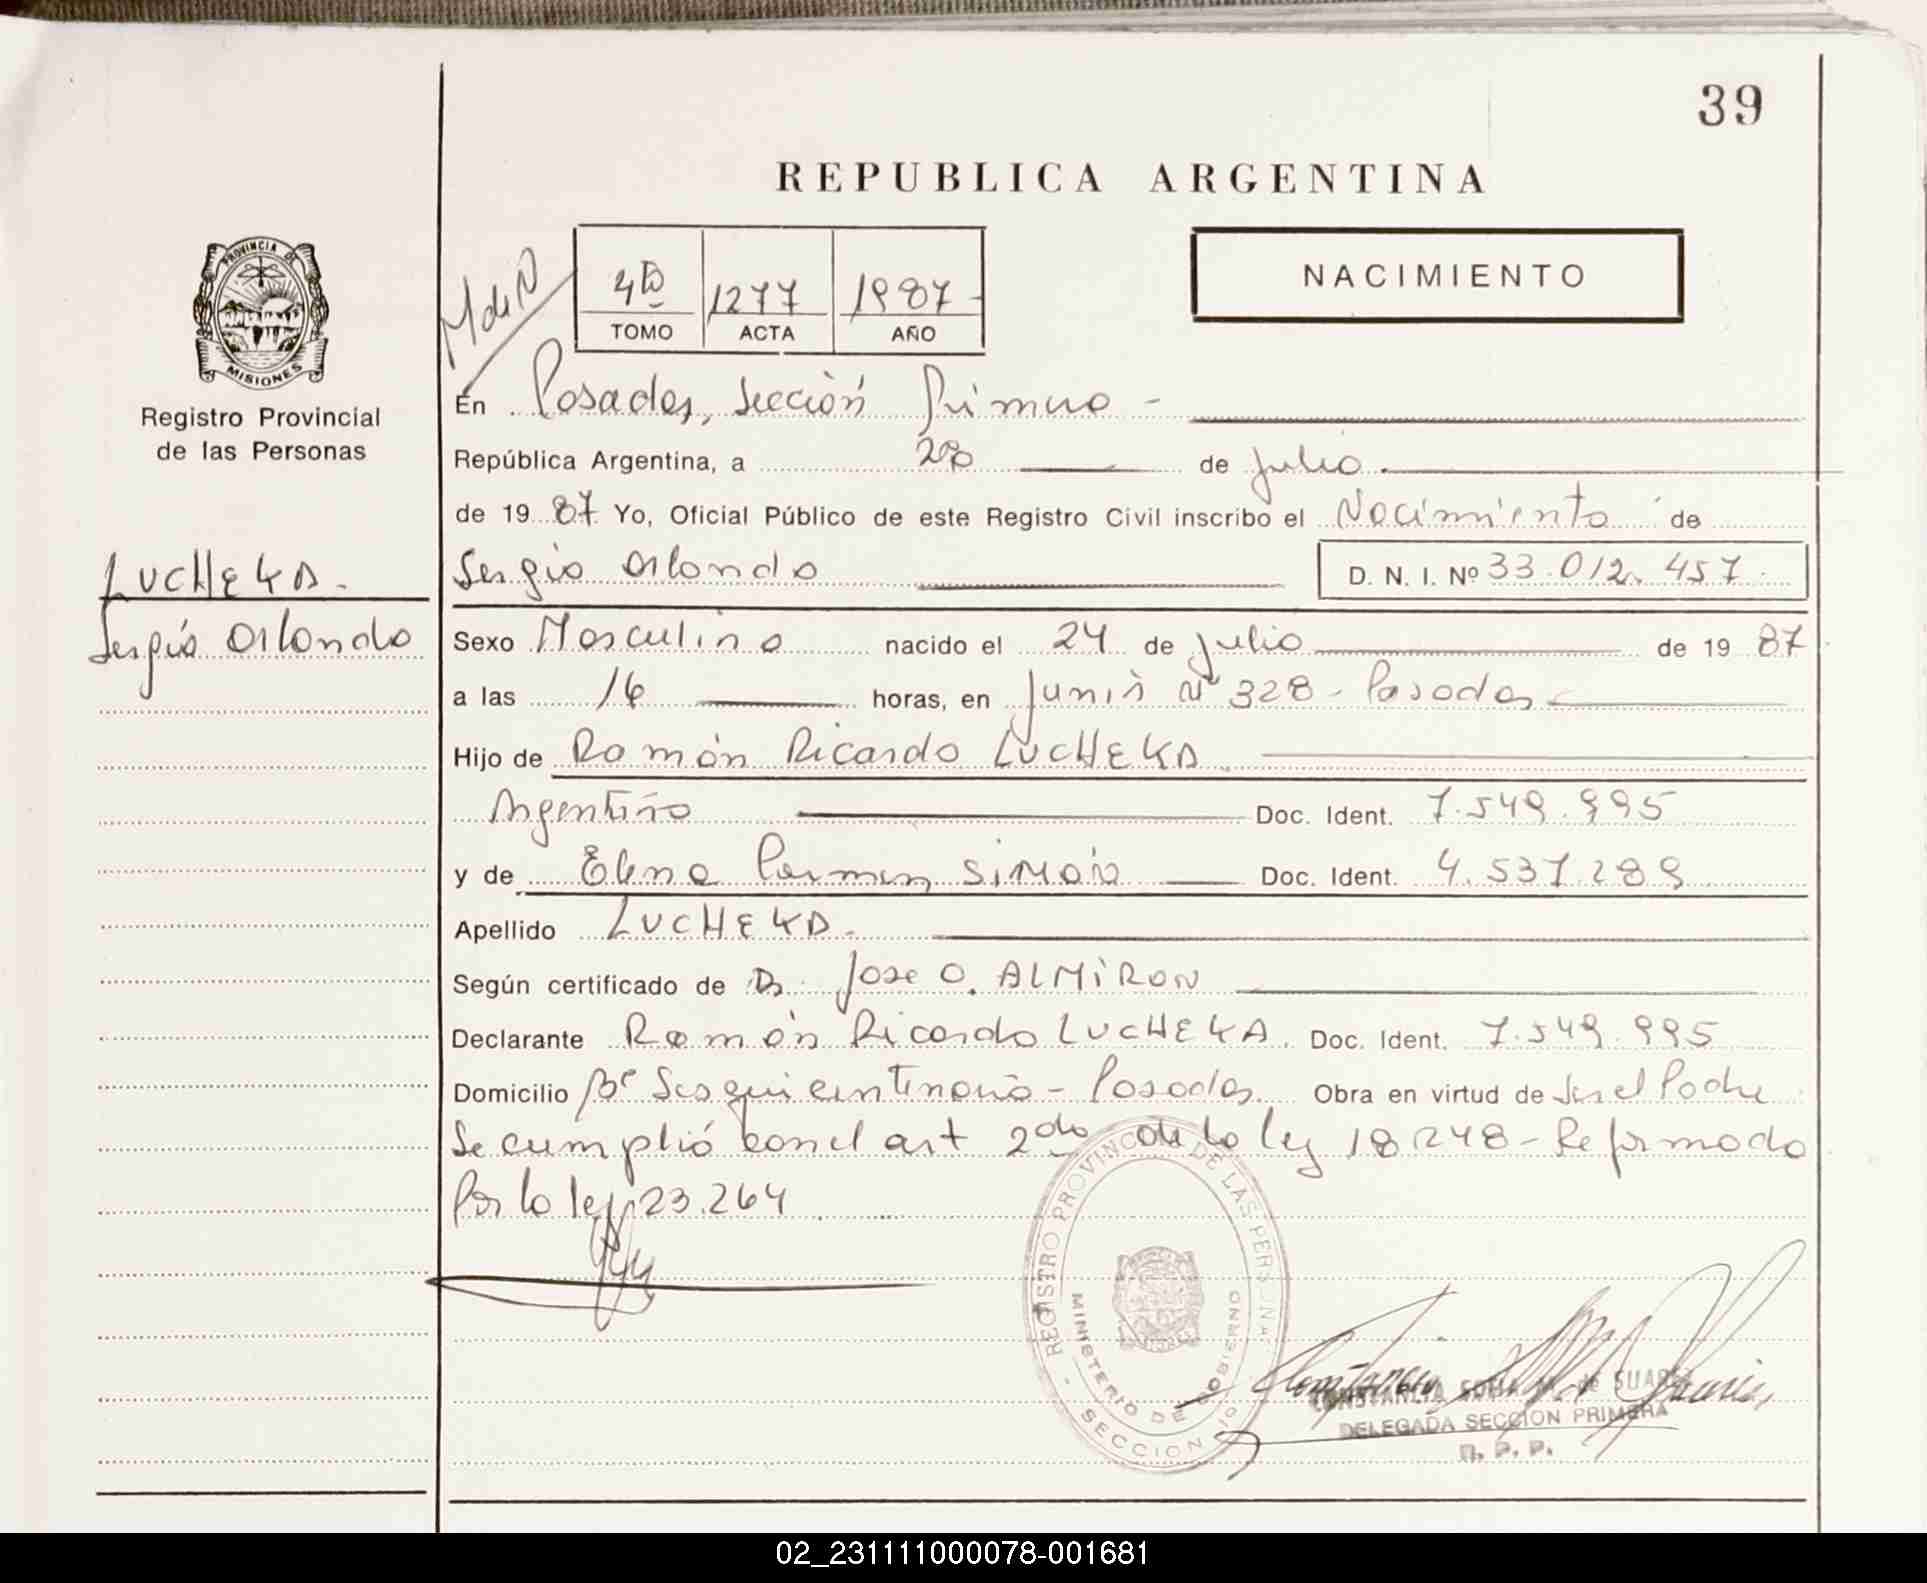 39
REPUBLICA ARGENTINA
PROVINCIA DE
MISIONES
Registro Provincial
de las Personas
LUCHEKA.
Sergio Orlando
M de N
4to 1277 1987
TOMO ACTA AÑO
NACIMIENTO
En Posadas, Sección Primera -
República Argentina, a 28 de julio.
de 1987 Yo, Oficial Público de este Registro Civil inscribo el Nacimiento de
Sergio Orlando D. N. I. Nº 33.012.457.
Sexo Masculino nacido el 24 de julio de 1987
a las 16 horas, en Junín Nº 328 - Posadas
Hijo de Ramón Ricardo LUCHEKA
Argentino Doc. Ident. 7.549.995
y de Elena Carmen SIMÓN Doc. Ident. 4.537.289
Apellido LUCHEKA.
Según certificado de Dr. Jose O. ALMIRON
Declarante Ramón Ricardo LUCHEKA. Doc. Ident. 7.549.995
Domicilio Bº Sesquicentenario - Posadas. Obra en virtud de Ser el Padre
Se cumplió con el art 2do de la ley 18.248 - Reformado
Por la ley 23.264
REGISTRO PROVINCIAL DE LAS PERSONAS
MINISTERIO DE GOBIERNO
- SECCION 1º
CONSTANCIA de SUAREZ
DELEGADA SECCION PRIMERA
R. P. P.
02_231111000078-001681